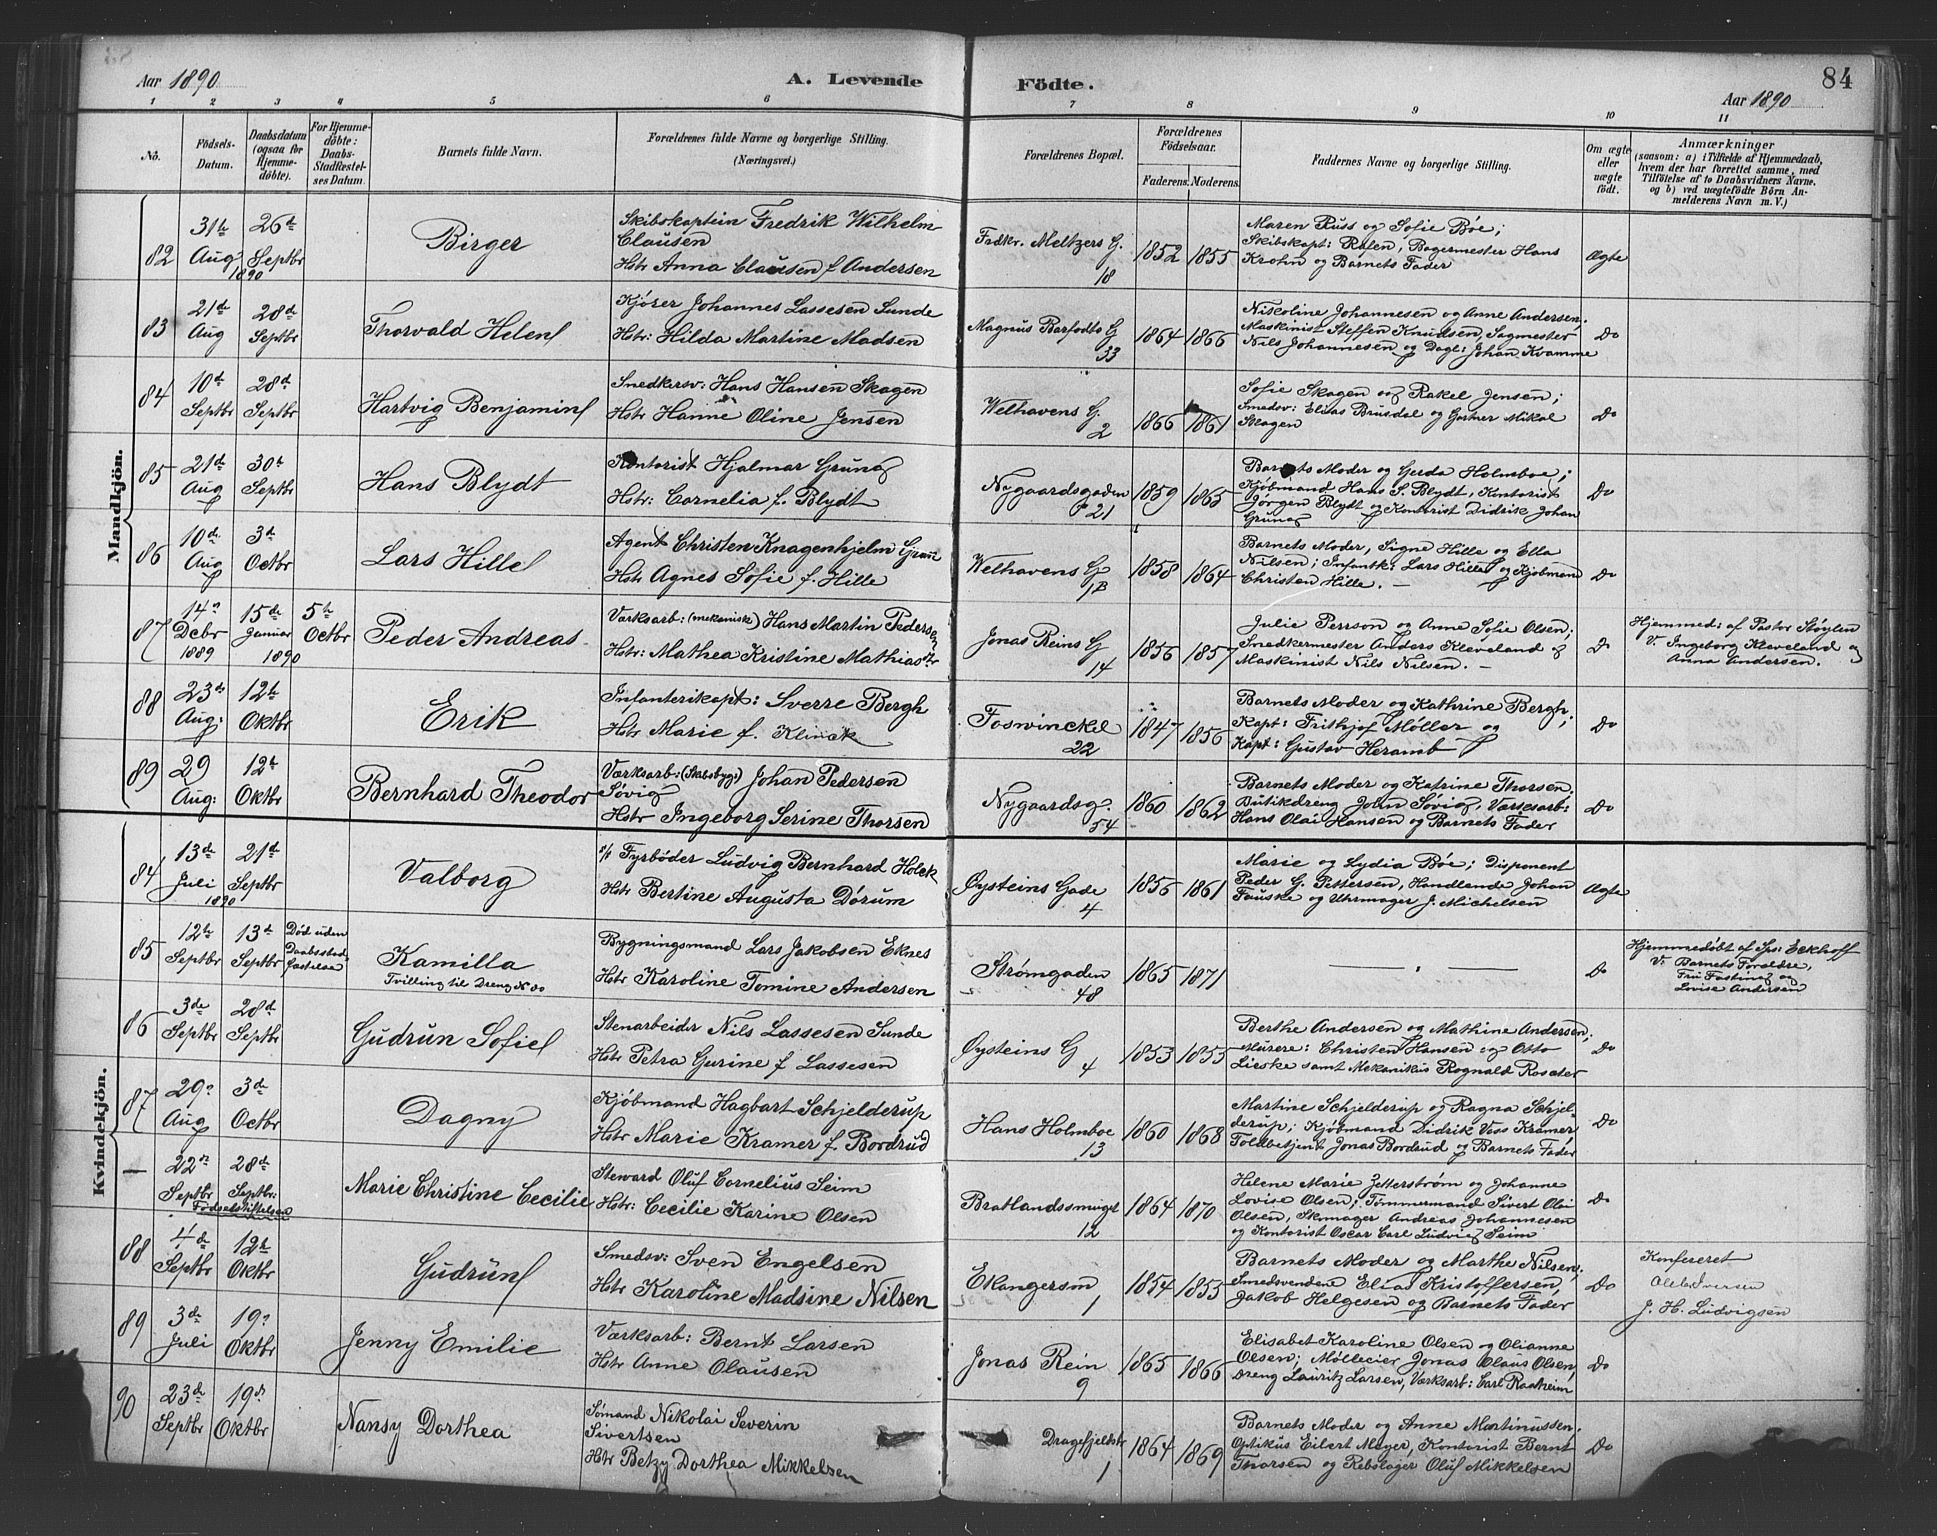 Aar 1890
A. Levende Födte.
84
Aar 1890
1 2 3 4 5 6 7 8 9 10 11
No.
Födsels-Datum.
Daabsdatum (ogsaa for Hjemme-döbte).
For Hjemme-döbte: Daabs-Stadfæstel-ses Datum.
Barnets fulde Navn.
Forældrenes fulde Navne og borgerlige Stilling. (Næringsvei.)
Forældrenes Bopæl.
Forældrenes Födselsaar.
Faderens. Moderens.
Faddernes Navne og borgerlige Stilling.
Om ægte eller uægte födt.
Anmærkninger
(saasom: a) i Tilfælde af Hjemmedaab,
hvem der har forrettet samme, med
Tilföielse af to Daabsvidners Navne,
og b) ved uægtefödte Börn An-
melderens Navn m. V.)
Mandkjön.
82 31te Aug 1890 26de Septbr
Birger
Skibskaptein Fredrik Wilhelm
Clausen
Hstr Anna Clausen f Andersen
Fredkr. Meltzers G. 18
1852 1855
Maren Russ og Sofie Böe;
Skibskapt: Rafen, Bagermester Hans
Krohn og Barnets Fader
Ægte
83 21de Aug 28de Septbr
Thorvald Helen
Kjører Johannes Lassesen Sunde
Hstr: Hilda Martine Madsen
Magnus Barfodts G 33
1864 1866
Nikoline Johannesen og Anne Andersen;
Maskinist Steffen Knudsen, Sagmester
Nils Johannesen og Dagl: Johan Kvamme
Do
84 10de Septbr 28de Septbr
Hartvig Benjamin
Snedkersv: Hans Hansen Skagen
Hstr Hanne Oline Jensen
Welhavens G. 2
1866 1861
Sofie Skagen og Rakel Jensen;
Smedsv: Elias Brusdal og Gartner Mikal
Skagen
Do
85 21de Aug 30te Septbr
Hans Blydt
Kontorist Hjalmar Gruno
Hstr: Cornelia f. Blydt
Nygaardsgaden 21
1859 1865
Barnets Moder og Gerda Holmboe;
Kjöbmand Hans S. Blydt, Kontorist
Jørgen Blydt og Kontorist Didrik Johan
Do
86 10de Aug 3de Octbr
Lars Hille
Agent Christen Knagenhjelm Gran
Hstr Agnes Sofie f. Hille
Welhavens G
1858 1864
Barnets Moder, Signe Hille og Ella
Nilsen; Infantk: Lars Hille og Kjöbmand
Christen Hille. —
Do
87 14de Dcbr 1889 15de Januar 1890 5te Octbr
Peder Andreas
Værksarb: (mekaniske) Hans Martin Pedersen
Hstr: Mathea Kristine Mathiasdtr
Jonas Reins G 14
1856 1857
Julie Persson og Anne Sofie Olsen;
Snedkermester Anders Kleveland og
Maskinist Nils Nilsen. —
Do
Hjemmed: af Pastor Støylen
V. Ingeborg Kleveland og
Anna Andersen.
88 23de Aug: 12te Oktbr
Erik
Infanterikapt: Sverre Bergh
Hstr Marie f. Klinck
Foswinckel 22
1847 1856
Barnets Moder og Kathrine Bergh;
Kapt: Frithjof Møller og
Kapt: Gustav Heramb
Do
89 29 Aug: 12te Oktbr
Bernhard Theodor
Værksarb: (Skibsbyg:) Johan Pedersen
Søvig
Hstr Ingeborg Serine Thorsen
Nygaardsg. 54
1860 1862
Barnets Moder og Katrine Thorsen;
Butikdreng John Søvig, Værksarb:
Hans Olai Hansen og Barnets Fader
Do
Kvindekjön.
84 13de Juli 1890 21de Septbr
Valborg
s/s Fyrbøder Ludvig Bernhard Holck
Hstr Bertine Augusta Dørum
Øysteins Gade 4
1856 1861
Marie og Lydia Böe; Disponent
Peder G. Pettersen, Handlende Johan
Fauske og Uhrmager J. Michelsen
Ægte
85 12te Septbr 13de Septbr
Død uden Daabsstadfæstelse
Kamilla
Tvilling til Dreng No 80
Bygningsmand Lars Jakobsen Eknes
Hstr Karoline Tomine Andersen
Strømgaden 48
1865 1871
— " —
Do
Hjemmedøbt af Sps: Eckhoff
V. Barnets Forældre,
Fru Fasting og
Lovise Andersen
86 3de Septbr 28de Septbr
Gudrun Sofie
Stenarbeider Nils Lassesen Sunde
Hstr Petra Gurine f Lassesen
Øysteins G 4
1853 1855
Berthe Andersen og Mathine Andersen;
Murere: Christen Hansen og Otto
Lieske samt Mekanikus Rognald Rosater
Do
87 29de Aug 3de Octbr
Dagny
Kjöbmand Hagbart Schjelderup
Hstr Marie Kramer f. Bordrud
Hans Holmboe 13
1860 1868
Martine Schjelderup og Ragna Schjel-
derup; Kjöbmand Didrik Voss Kramer
Toldbetjent Jonas Bordrud og Barnets Fader
Do
— 22de Septbr 28de Septbr:
Fødselsstiftelsen
Marie Christine Cecilie
Steward Oluf Cornelius Seim
Hstr: Cecilie Karine Olsen
Bratlandssmuget 12
1864 1870
Helene Marie Zetterström og Johanne
Lovise Olsen; Tømmermand Sivert Olai
Olsen, Skmager Andreas Johannesen
og Kontorist Oscar Carl Ludvig Seim
Do
88 4de Septbr 12te Oktbr
Gudrun
Smedsv: Sven Engelsen
Hstr Karoline Madsine Nilsen
Ekangersm 1
1854 1855
Barnets Moder og Marthe Nilsen;
Smedsvendene Elias Kristoffersen,
Jakob Helgesen og Barnets Fader
Do
Konfereret
J. H. Ludvigsen
89 3de Juli 19de Oktbr
Jenny Emilie
Værksarb: Bernt Larsen
Hstr Anne Olausen
Jonas Rein 9
1865 1866
Elisabet Karoline Olsen og Olianne
Olsen; Møllecier Jonas Claus Olsen,
Dreng Lauritz Larsen, Værksarb: Carl Raaheim
Do
90 23de Septbr 19de Oktbr
Nansy Dorthea
Sømand Nikolai Severin
Sivertsen
Hstr Betzy Dorthea Mikkelsen
Dragefjeldstr 1
1864 1869
Barnets Moder og Anne Martinussen;
Optikus Eilert Mayer, Kontorist Bernt
Thorsen og Rebslager Oluf Mikkelsen
Do